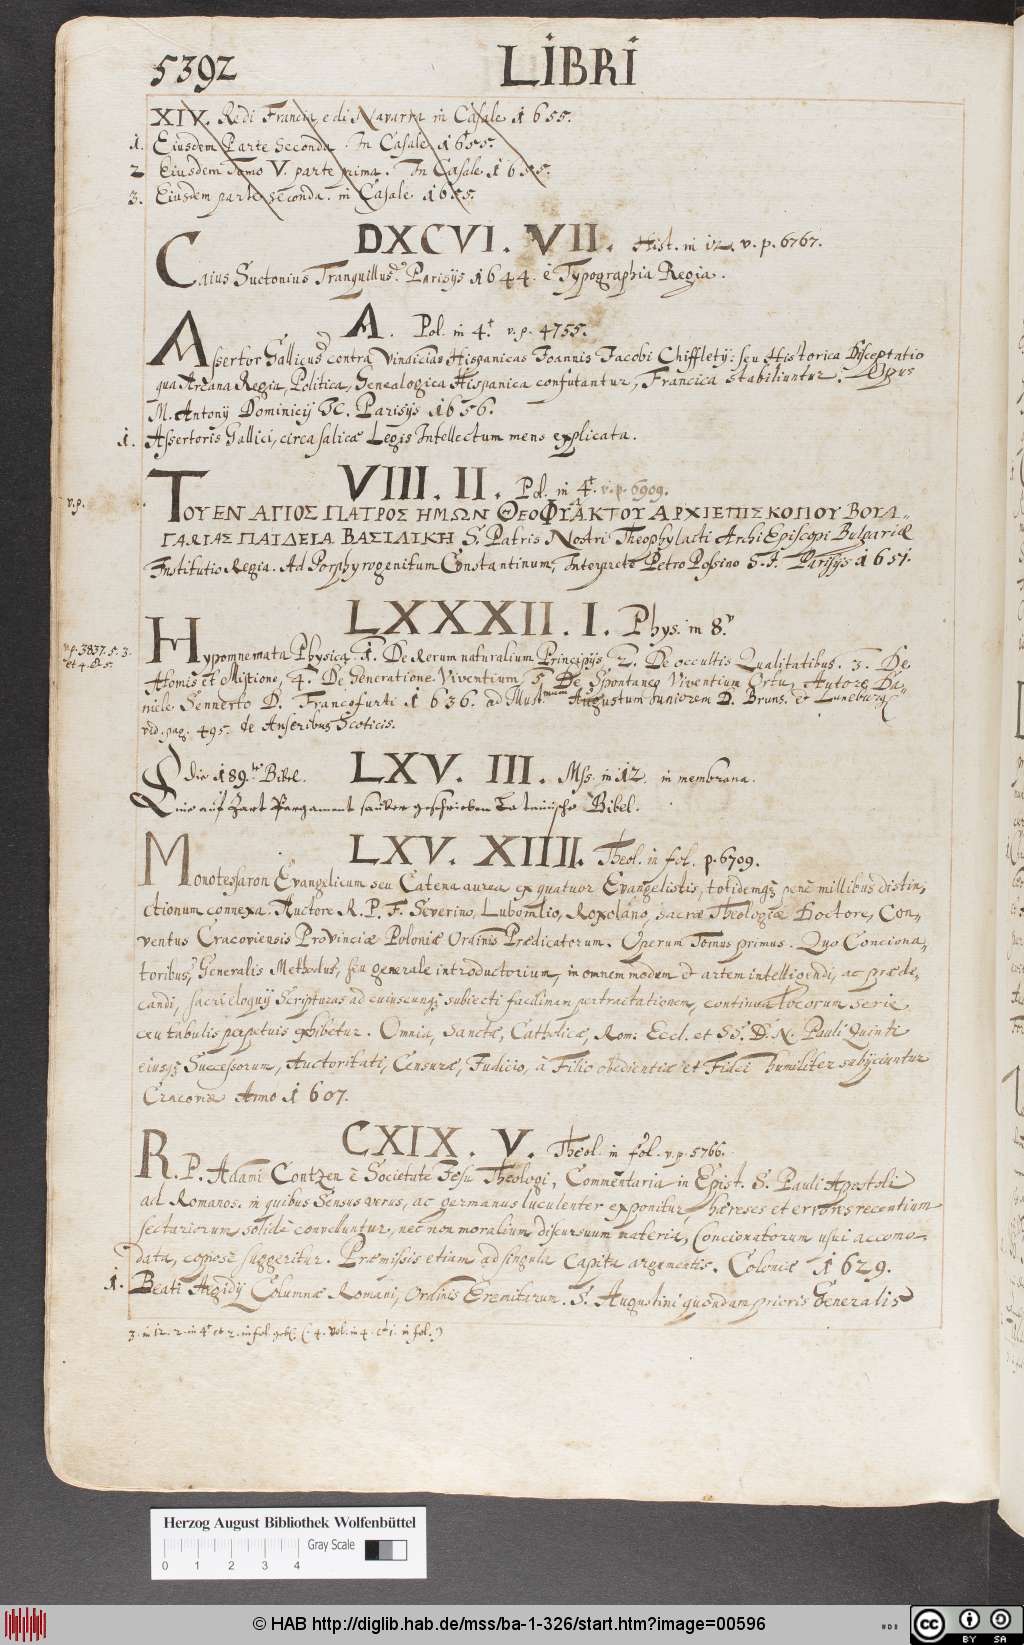 5392 LIBRI
XIV. Re di Francia, e di Navarra in Casale 1655.
1. Eiusdem Parte seconda. In Casale 1655.
2 Eiusdem Tomo V. parte prima. In Casale. 1655.
3. Eiusdem parte seconda. in Casale. 1655.
DXCVI. VII. Hist. in 12. v. p. 6767.
Caius Suetonius Tranquillus. Parisijs 1644. è Typographia Regia.
A. Pol. in 4t. v. p. 4755.
Assertor Gallicus contra Vindicias Hispanicas Joannis Jacobi Chiffletij: seu Historica Disceptatio
qua Arcana Regia, Politica, Genealogica Hispanica confutantur, Francica stabiliuntur. Opus
M. Antonij Dominicij JC. Parisijs 1656.
1. Assertoris Gallici, circa salicæ Legis Intellectum mens explicata.
VIII. II. Pol. in 4t. v. p. 6909.
v. p. ΤΟΥ ΕΝ ΑΓΙΟΣ ΠΑΤΡΟΣ ΗΜΩΝ ΘΕΟΦΥΛΑΚΤΟΥ ΑΡΧΙΕΠΙΣΚΟΠΟΥ ΒΟΥΛ-
ΓΑΡΙΑΣ ΠΑΙΔΕΙΑ ΒΑΣΙΛΙΚΗ S. Patris Nostri Theophylacti ArchiEpiscopi Bulgariæ
Institutio Regia. Ad Porphyrogenitum Constantinum, Interprete Petro Possino S. J. Parisijs 1651.
LXXXII. I. Phys. in 8v.
v. p. 3837. 5. 3. et 4. & 5. Hypomnemata Physica. 1. De Rerum naturalium Principijs 2. De occultis Qualitatibus. 3. De
Atomis et Mistione, 4. De Generatione Viventium 5. De Spontaneo Viventium Ortu, Autore Da-
niele Sennerto D. Francofurti 1636. ad Illustmum Augustum Juniorem D. Bruns. & Luneburg
vid. pag. 495. de Anseribus Scoticis.
Die 189.te Bibel. LXV. III. Mss. in 12. in membrana.
Eine auf Zart Pergament sauber geschrieben Lateinische Bibel.
LXV. XIIII. Theol. in fol. p. 6709.
Monotessaron Evangelicum seu Catena aurea ex quatuor Evangelistis, totidemq; penè millibus distin-
ctionum connexa. Auctore R. P. F. Severino, Lubomlio, Roxolano, sacræ Theologiæ Doctore, Con-
ventus Cracoviensis Provinciæ Poloniæ Ordinis Prædicatorum. Operum Tomus primus. Quo Conciona-
toribus, Generalis Methodus, seu generale introductorium, in omnem modum et artem intelligendi, ac præde-
candi, sacri eloquij Scripturas ad cuiuscunq; subiecti facilimam pertractationem, continua locorum serie
ceu tabulis perpetuis exhibetur. Omnia, Sanctæ, Catholicæ, Rom: Eccl. et SS. D. N. Pauli Quinti
eiusq; Successorum, Auctoritati, Censuræ, Judicio, à Filio obedientiæ et Fidei humiliter subijciuntur
Cracoviæ Anno 1607.
CXIX. V. Theol. in fol. v. p. 5766.
R. P. Adami Contzen è Societate Jesu Theologi, Commentaria in Epist. S. Pauli Apostoli
ad Romanos. in quibus Sensus verus, ac germanus luculenter exponitur, hæreses et errores recentium
sectariorum solidè convelluntur, nec non moralium discursuum materia, Concionatorum usui accomo-
data, copiosè suggeritur. Præmissis etiam ad singula Capita argumentis. Coloniæ 1629.
1. Beati Aegidij Columnæ Romani, Ordinis Eremitarum S. Augustini quondam prioris Generalis
3. in 12. 2. in 4t et 2. in fol.
Herzog August Bibliothek Wolfenbüttel
Gray Scale
0 1 2 3 4
© HAB http://diglib.hab.de/mss/ba-1-326/start.htm?image=00596
cc BY SA